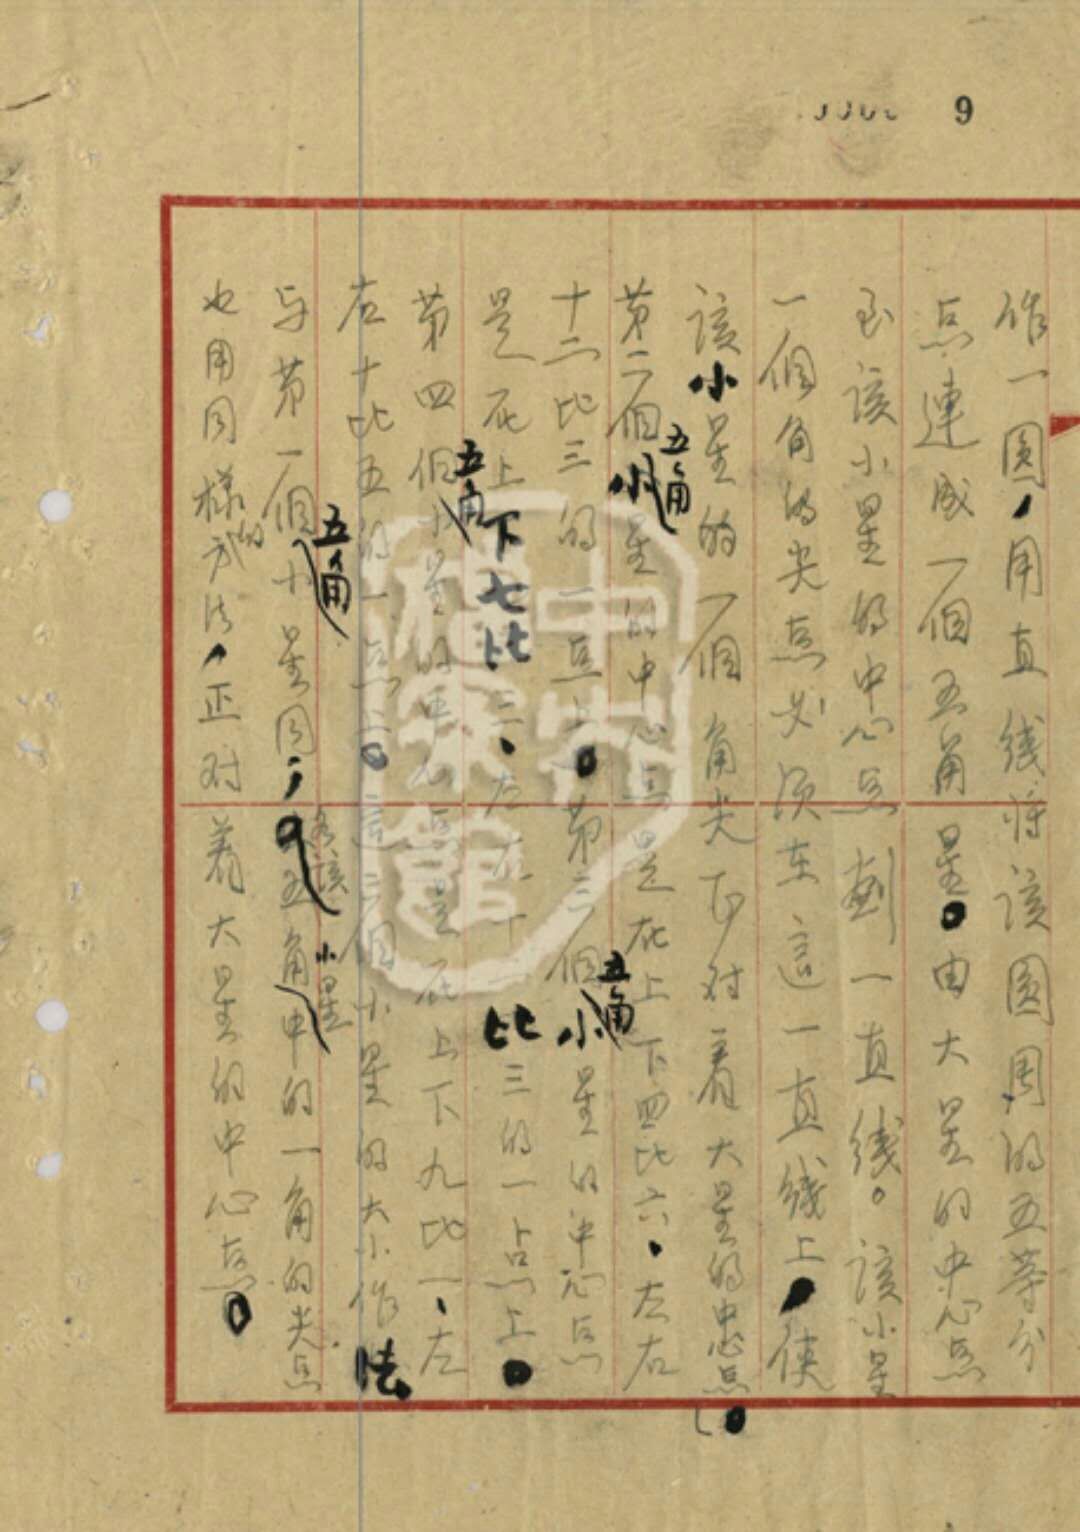 9
作一圓，用直线将该圆周的五等分
点連成一個五角星。由大星的中心点
至该小星的中心点劃一直线。该小星
一個角的尖点必须在這一直线上，使
该小星的一個角尖正对着大星的中心点。
第二個小五角星的中心点是在上下四比六、左右
十二比三的一点上。第三個小五角星的中心点
是在上下七比三、左右十二比三的一点上。
第四個小五角星的中心点是在上下九比一、左
右十比五的一点上。這三個小星的大小作法
与第一個小五角星同；各该小五角星中的一角的尖点
也用同样的方法，正对着大星的中心点。
中央檔案館